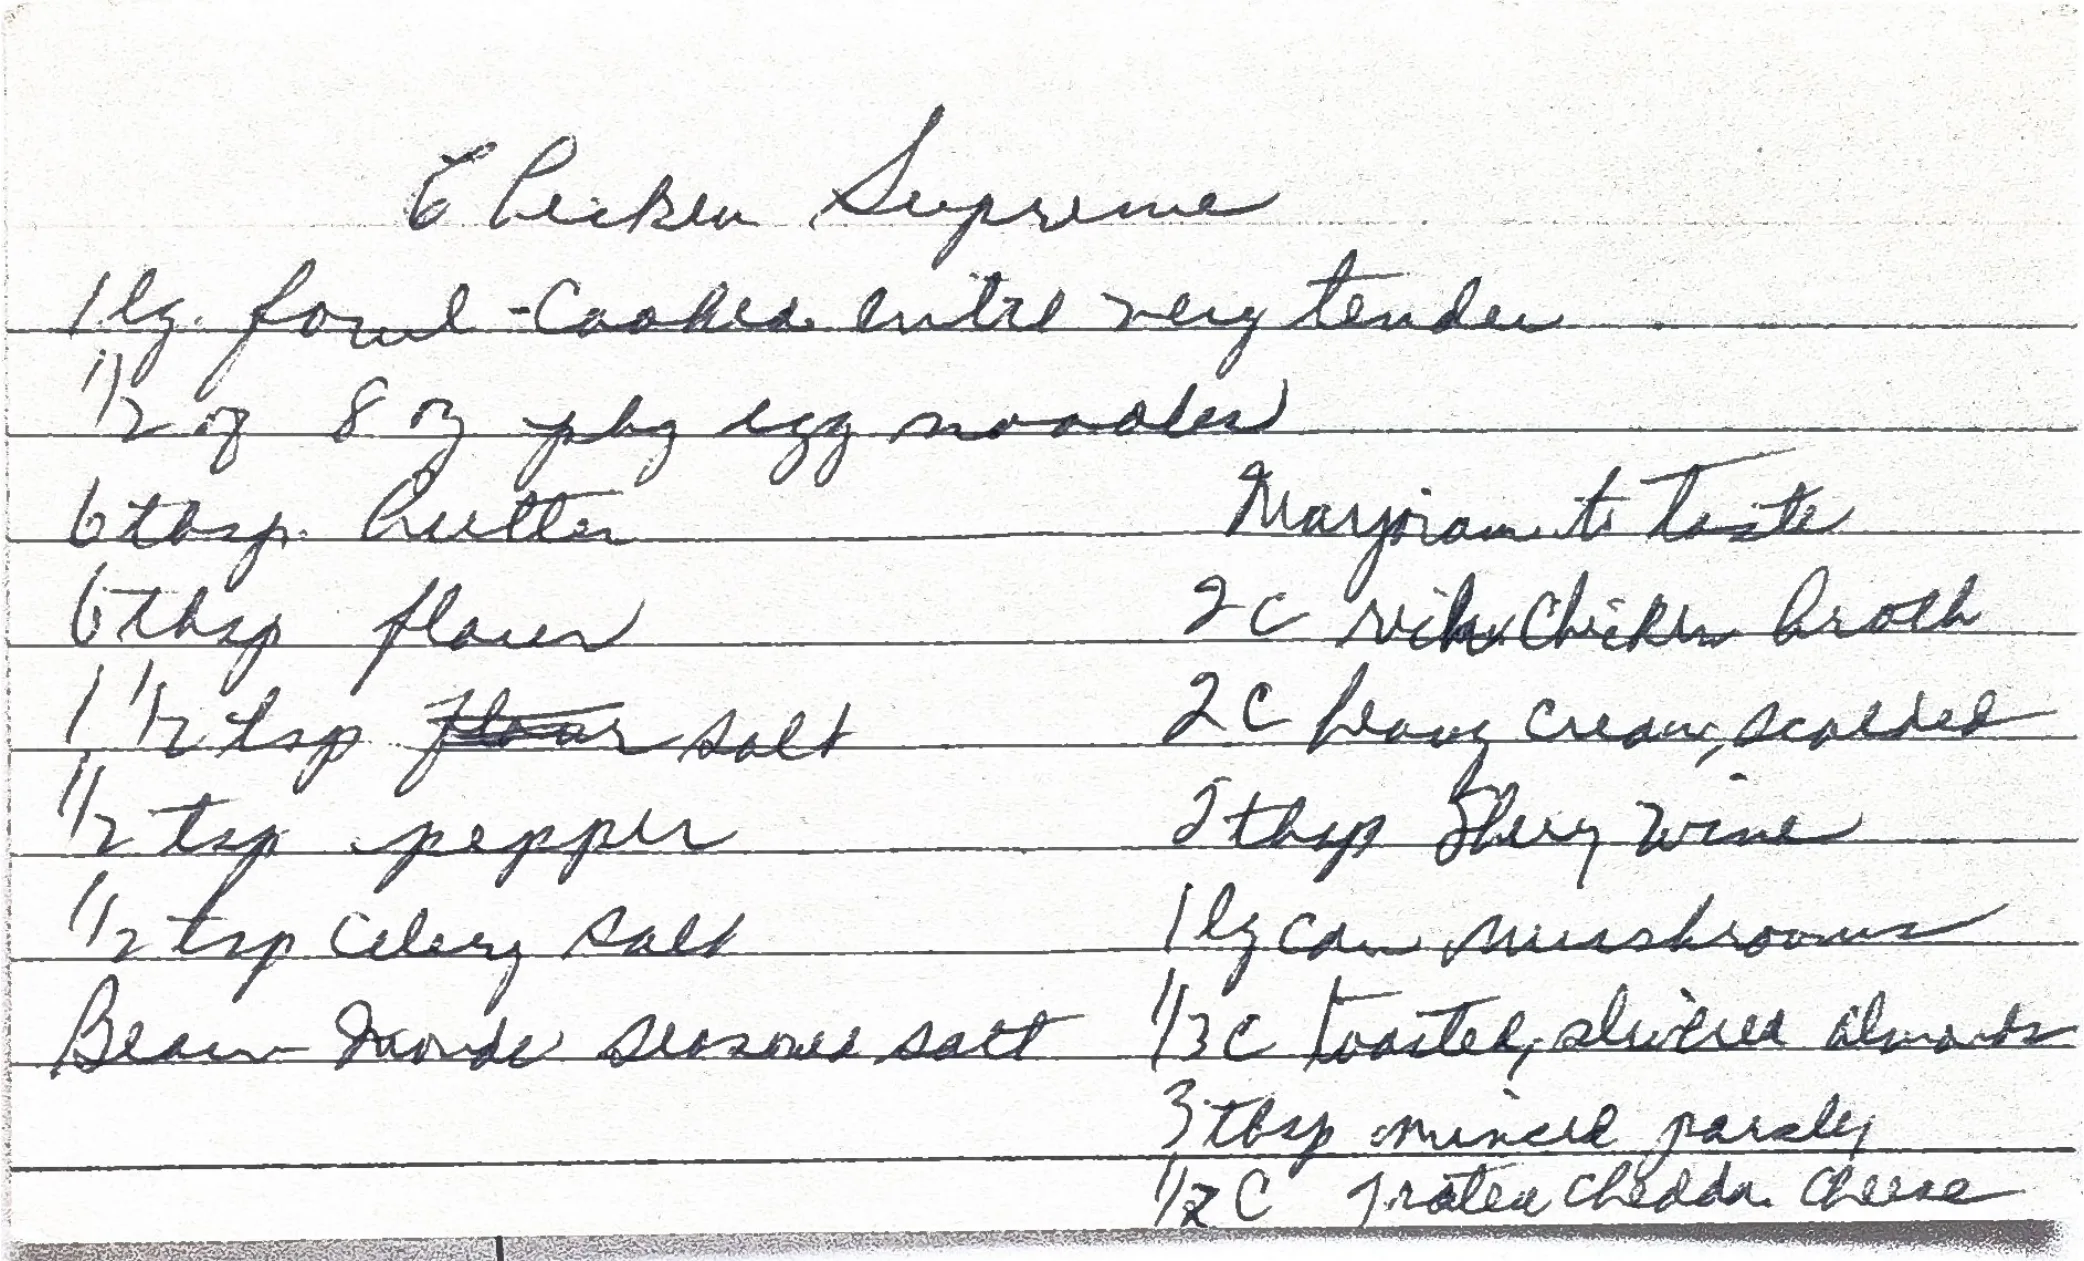 Chicken Supreme
1 lg. fowl - Cooked until very tender
1/2 of 8 oz pkg egg noodles
6 tbsp. butter
6 tbsp flour
1 1/2 tsp salt
1/2 tsp pepper
1/2 tsp Celery salt
Beau Monde seasoned salt
Marjoram to Taste
2 C rich chicken broth
2 C heavy cream, scalded
2 tbsp Sherry Wine
1 lg can mushrooms
1/3 C toasted, slivered almonds
3 tbsp minced parsley
1/2 C grated cheddar cheese